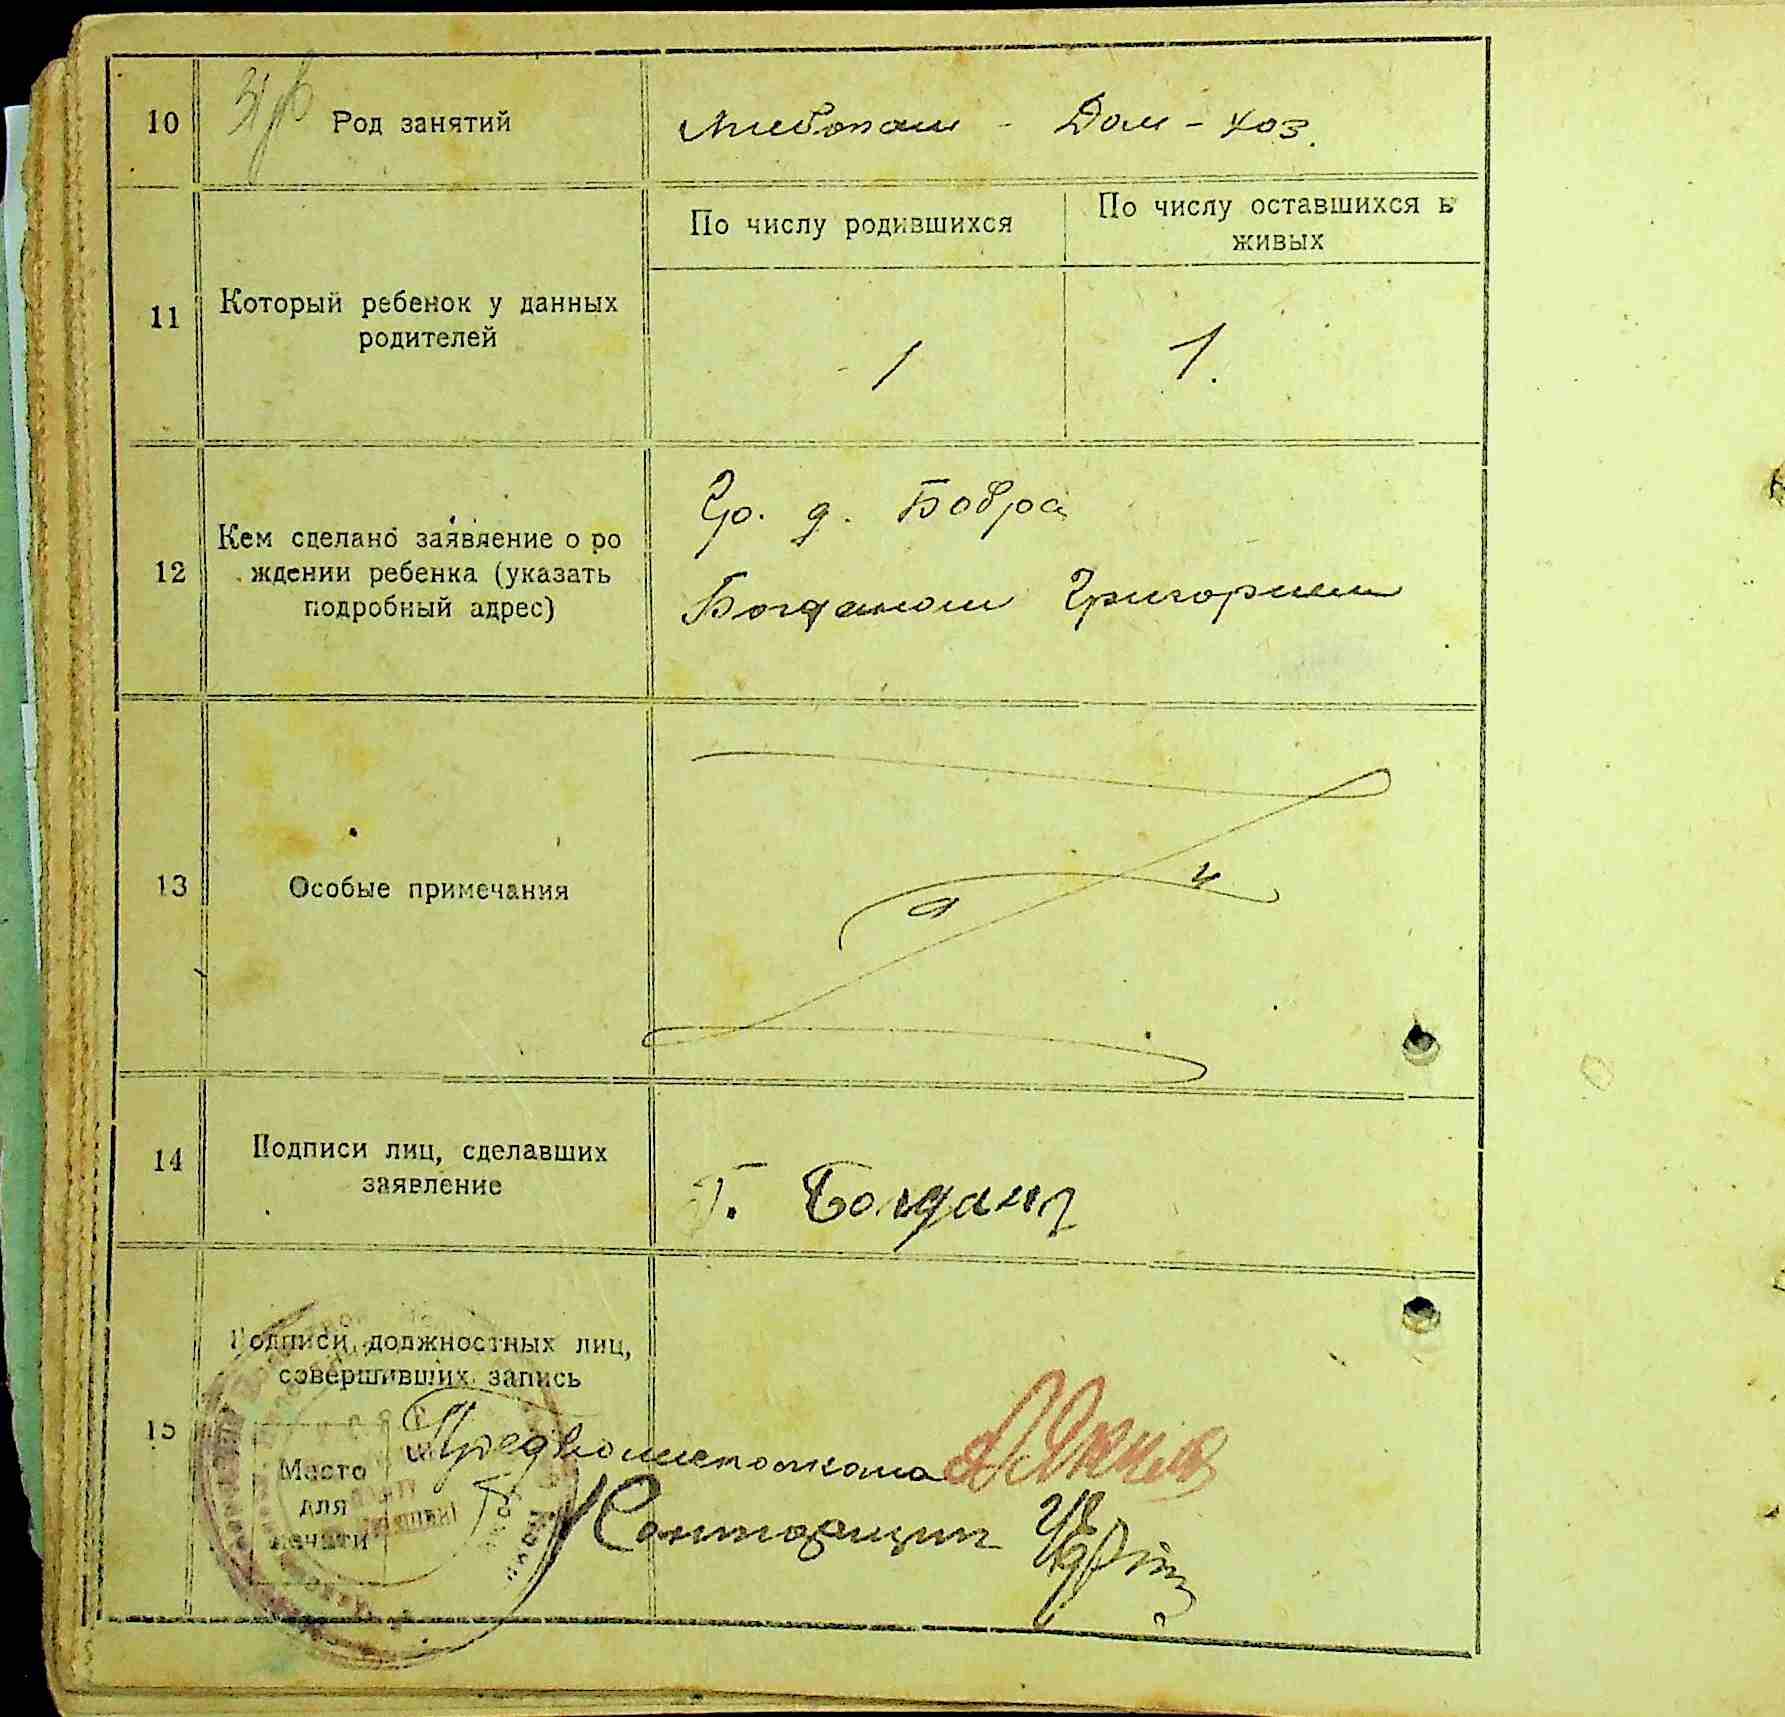 10 Род занятий Хлебопаш - Дом-хоз.
11 Который ребенок у данных
родителей
По числу родившихся
По числу оставшихся в
живых
1 1.
12 Кем сделано заявление о ро
ждении ребенка (указать
подробный адрес)
Гр. д. Бобра
Богданом Григорием
13 Особые примечания
14 Подписи лиц, сделавших
заявление
Г. Богдан
15 Подписи должностных лиц,
совершивших запись
Место
для
печати